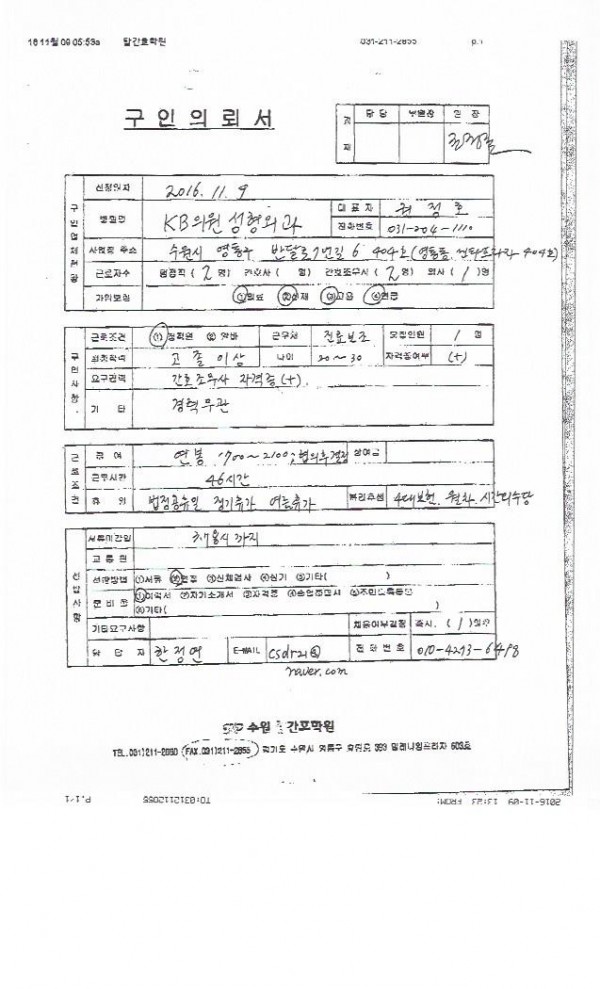 16 11월 09 05:53a 탑간호학원 031-211-2855 p.1
구 인 의 뢰 서
결 재 담 당 부원장 원 장
신청일자 2016. 11. 9
병원명 KB의원 성형외과 대 표 자 권 정 호
전화번호 031-204-1110
사업장 주소 수원시 영통구 반달로7번길 6 404호 (영통동,
근로자수 원장직 ( 2 명) 간호사 ( 명) 간호조무사 ( 2 명) 의사 ( 1 )명
가입보험 ①의료 ②산재 ③고용 ④연금
구 인 사 항
근로조건 ① 정직원 ② 알바 근무처 진료보조 모집인원 1 명
최종학력 고 졸 이상 나이 20~30 자격증여부 (+)
요구경력 간호조무사 자격증(+).
기 타 경력무관
근 로 조 건
급 여 연봉 1700~2100, 협의후결정 상여금
근무시간 46시간
휴 일 법정공휴일 정기휴가 여름휴가 복리후생 4대보험, 월차, 시간외수당
서류마감일 까지
교 통 편
선발방법 ①서류 ②면접 ③신체검사 ④실기 ⑤기타( )
준 비 물 ①이력서 ②자기소개서 ③자격증 ④졸업증명서 ⑤주민등록등본
⑥기타( )
기타요구사항 채용여부결정 즉시, ( 1 )일후
담 당 자 한정연 E-MAIL csdr21@ 전 화 번 호 010-4293-6498
naver.com
수원 간호학원
TEL.031)211-2880 (FAX.031)211-2855) 경기도 수원시 영통구 603호
2016-11-09 13:23 FROM: TO:0312112855 P.1/1